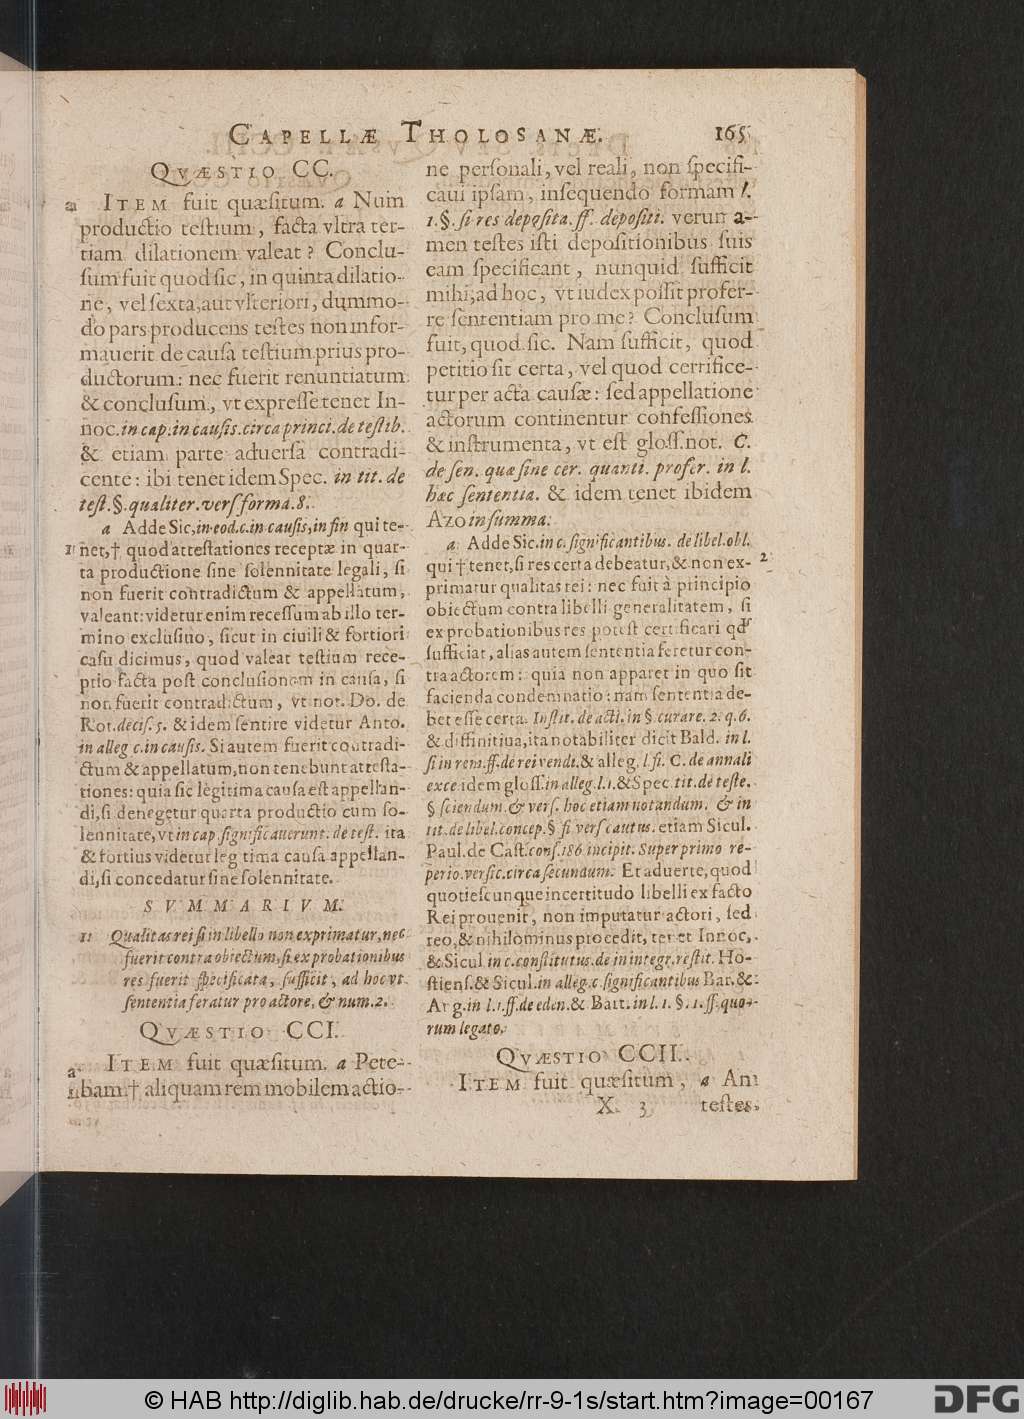 CAPELLÆ THOLOSANÆ. 165
QVÆSTIO CC.
a ITEM fuit quæsitum. a Num
productio testium, facta vltra ter-
tiam dilationem valeat? Conclu-
sum fuit quod sic, in quinta dilatio-
ne, vel sexta, aut vlteriori, dummo-
do pars producens testes non infor-
mauerit de causa testium prius pro-
ductorum: nec fuerit renuntiatum
& conclusum, vt expresse tenet In-
noc. in cap. in causis. circa princi. de testib.
& etiam parte aduersa contradi-
cente: ibi tenet idem Spec. in tit. de
test. §. qualiter. vers. forma. 8.
a Adde Sic, in eod. c. in causis, in fin qui te-
1 net, † quod attestationes receptæ in quar-
ta productione sine solennitate legali, si
non fuerit contradictum & appellatum,
valeant: videtur enim recessum ab illo ter-
mino exclusiuo, sicut in ciuili & fortiori
casu dicimus, quod valeat testium rece-
ptio facta post conclusionem in causa, si
non fuerit contradictum, vt not. Do. de
Rot. decis. 5. & idem sentire videtur Anto.
in alleg c. in causis. Si autem fuerit contradi-
ctum & appellatum, non tenebunt attesta-
tiones: quia sic legitima causa est appellan-
di, si denegetur quarta productio cum so-
lennitate, vt in cap. significauerunt. de test. ita
& fortius videtur leg tima causa appellan-
di, si concedatur sine solennitate.
SVMMARIVM.
1 Qualitas rei si in libello non exprimatur, nec
fuerit contra obiectum, si ex probationibus
res fuerit specificata, sufficit, ad hoc vt
sententia feratur pro actore, & num. 2.
QVÆSTIO CCI.
a ITEM fuit quæsitum. a Pete-
1 bam † aliquam rem mobilem actio-
ne personali, vel reali, non specifi-
caui ipsam, insequendo formam l.
1. §. si res deposita. ff. depositi. verun a-
men testes isti depositionibus suis
eam specificant, nunquid sufficit
mihi, ad hoc, vt iudex possit profer-
re sententiam pro me? Conclusum
fuit, quod sic. Nam sufficit, quod
petitio sit certa, vel quod certifice-
tur per acta causæ: sed appellatione
actorum continentur confessiones
& instrumenta, vt est gloss. not. C.
de sen. quæ sine cer. quanti. profer. in l.
hæc sententia. & idem tenet ibidem
Azo in summa.
a Adde Sic. in c. significantibus. de libel. obl.
qui † tenet, si res certa debeatur, & non ex- 2
primatur qualitas rei: nec fuit à principio
obiectum contra libelli generalitatem, si
ex probationibus res potest certificari qd
sufficiat, alias autem sententia feretur con-
tra actorem: quia non apparet in quo sit
facienda condemnatio: nam sententia de-
bet esse certa. Instit. de acti. in § curare. 2. q. 6.
& diffinitiua, ita notabiliter dicit Bald. in l.
si in rem. ff. de rei vendi. & alleg. l. fi. C. de annali
exce idem gloss. in alleg. l. 1. & Spec tit. de teste.
§ sciendum. & vers. hoc etiam notandum. & in
tit. de libel. concep. § fi vers cautus. etiam Sicul.
Paul. de Cast. cons. 186 incipit. Super primo re-
perio. versic. circa secundum. Et aduerte, quod
quotiescunque incertitudo libelli ex facto
Rei prouenit, non imputatur actori, sed
reo, & nihilominus procedit, tenet Innoc,
& Sicul in c. constitutus. de in integr. restit. Ho-
stiens. & Sicul. in alleg. c. significantibus Bar. &
Arg. in l. 1. ff. de eden. & Bart. in l. 1. §. 1. ff. quo-
rum legato.
QVÆSTIO CCII.
ITEM fuit quæsitum, a An
X 3 testes
© HAB http://diglib.hab.de/drucke/rr-9-1s/start.htm?image=00167
DFG